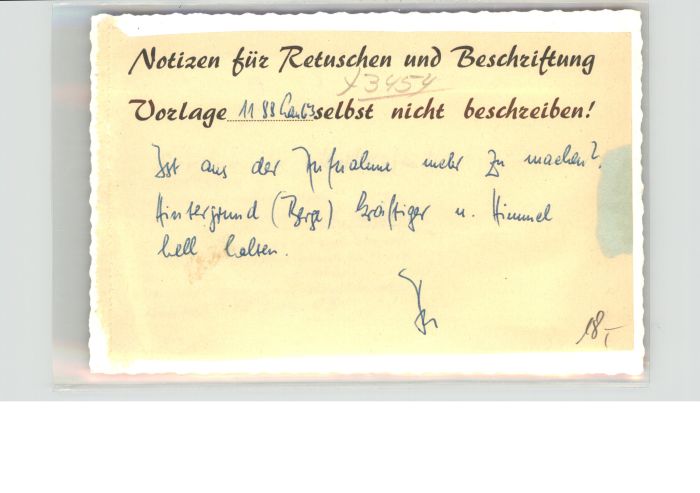 Notizen für Retuschen und Beschriftung
X3454
Vorlage 11 88 selbst nicht beschreiben!
Ist aus der Aufnahme mehr zu machen?
Hintergrund (Berge) kräftiger u. Himmel
hell halten.
18,-